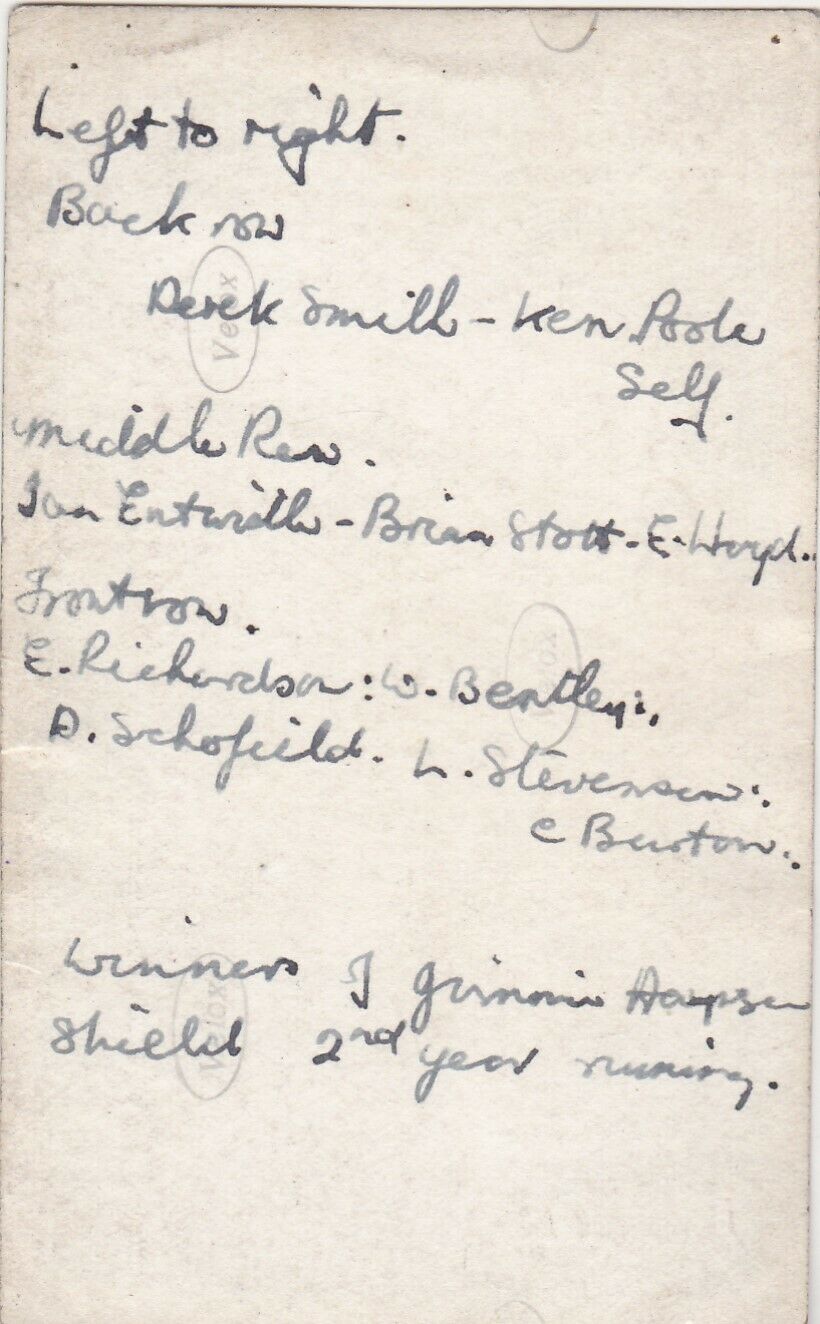 Left to right.
Back row
Derek Smith - Ken Poole
Self.
Middle Row.
Ian Entwistle - Brian Stott - E.
Front row.
E. Richardson: W. Bentley:,
D. Schofield. L. Stevenson:.
C Burton..
Winners of
Shield 2nd year runing.
Velox
Velox
Velox